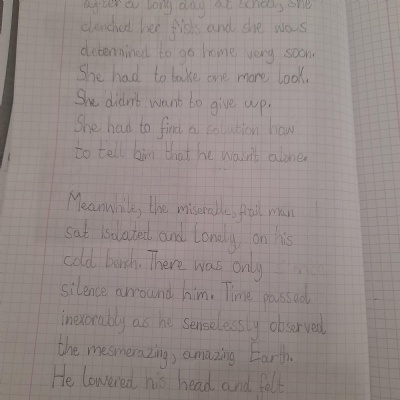 after a long day at school, she
clenched her fists and she was
determined to go home very soon.
She had to take one more look.
She didn't want to give up.
She had to find a solution how
to tell him that he wasn't alone.
Meanwhile, the miserable, frail man
sat Isolated and Lonely, on his
cold bench. There was only
silence arround him. Time passed
inexorably as he senselessly observed
the mesmerazing, amazing Earth.
He lowered his head and felt